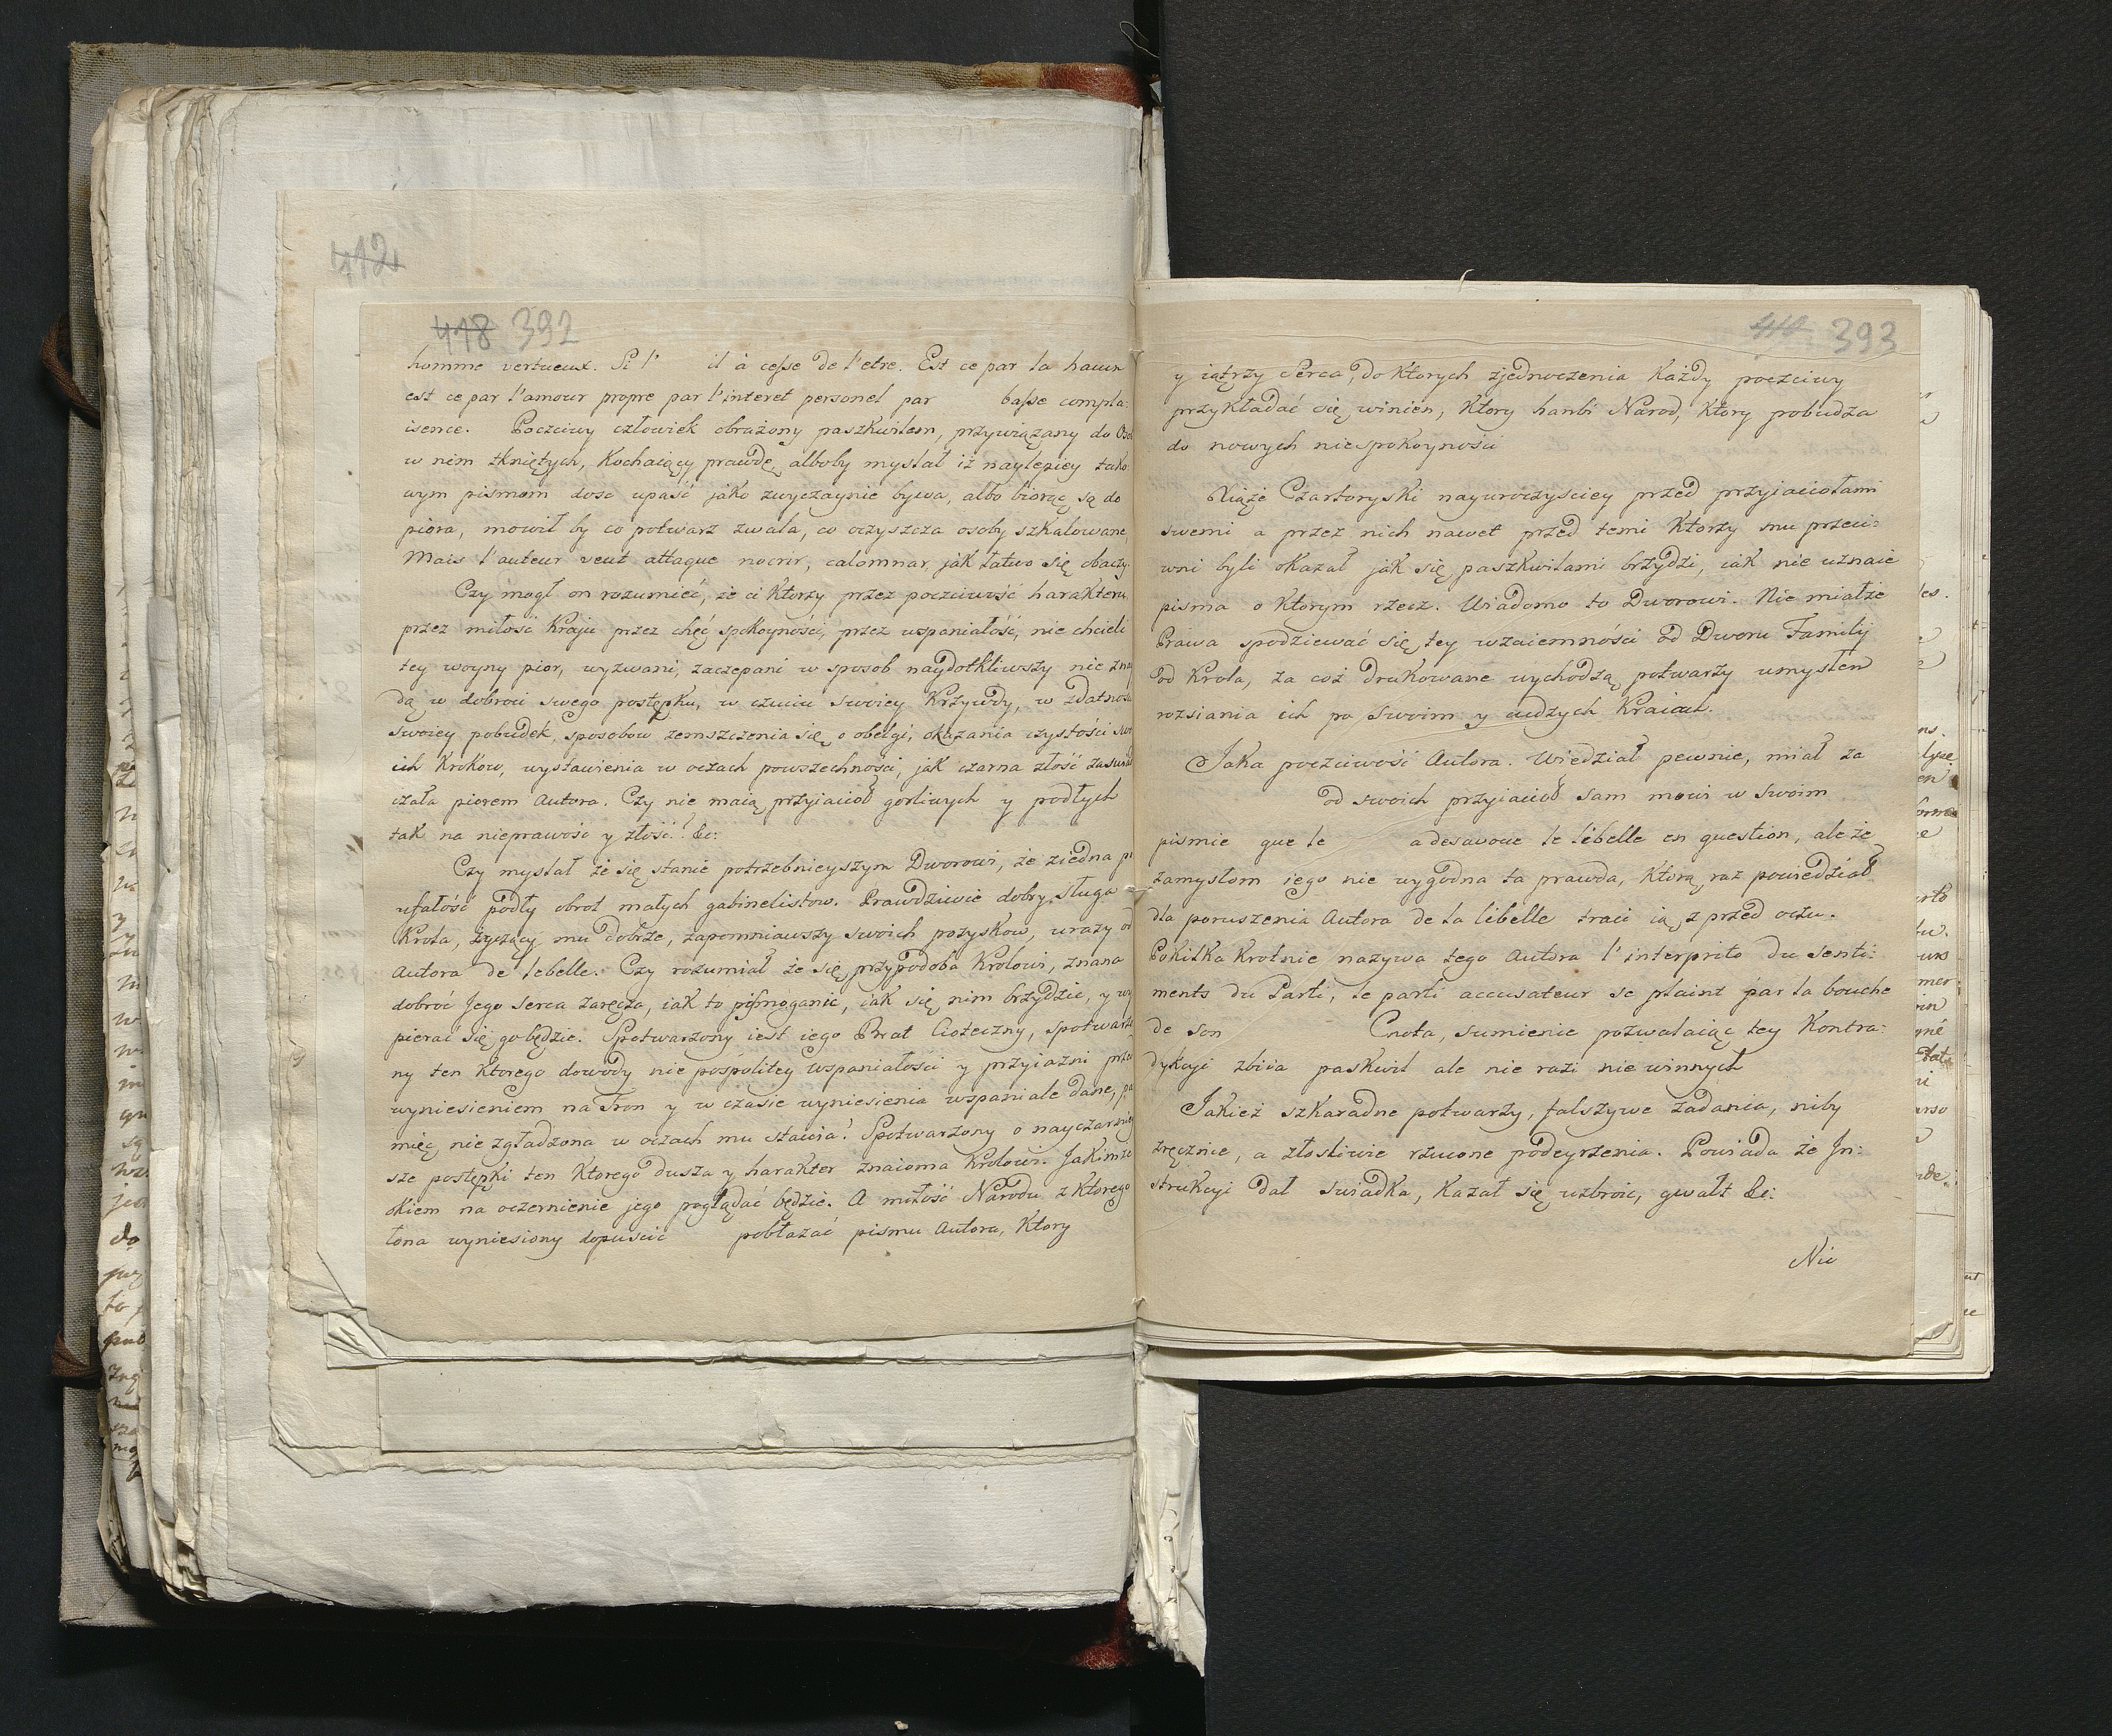 412
418 392
homme vertueux. Si l' il à cesse de l'etre. Est ce par la haun
est ce par l'amour propre par l'interet personel par basse compla:
isence. Poczciwy człowiek obrażony paszkwilem, przywiązany do Oso
w nim tkniętych, Kochaiący prawdę, alboby myslał iż naylepiey tako:
wym pismom dosc upaść jako zwyczaynie bywa, albo biorąc są do
piora, mowił by co potwarz zwala, co oczyszcza osoby szkalowane,
Mais l'auteur veut attaque nocrir, calomnar, jak łatwo się obaczy.
Czy mogł on rozumieć, że ci Ktorzy przez poczciwość harakteru,
przez miłość Kraju przez chęć spokoyności, przez wspaniałość, nie chcieli
tey woyny pior, wyzwani, zaczepani w sposob naydotkliwszy nie zna
dą w dobroci swego postępku, w czuciu swoiey Krzywdy, w zdatnośc
swoiey pobudek, sposobow zemszczenia się o obelgi, okazania czystości swo
ich Krokow, wystawienia w oczach powszechności, jak czarna złość
czała piorem Autora. Czy nie maią przyiacioł gorliwych y podłych
tak na nieprawość y złość? &c:
Czy myslał że się stanie potrzebnieyszym Dworowi, że ziedna
ufałość podły obrot małych gabinelistow. Prawdziwie dobry Sługa
Krola, życzący mu dobrze, zapomniawszy swoich pozyskow, urazy od
Autora de lebelle. Czy rozumiał że się przypodoba Krolowi, znana
dobroć Jego Serca zaręcza, iak to pismo ganić, iak się nim brzydzić, y wy
pierać się go będzie. Spotwarzony iest iego Brat Cioteczny, spotwarzo
ny ten Ktorego dowody nie pospolitey wspaniałosci y przyiazni prze
wyniesieniem na Tron y w czasie wyniesienia wspaniale dane, pa
mięć nie zgładzona w oczach mu stawia? Spotwarzony o nayczarniey
sze postępki ten Ktorego dusza y harakter znaioma Krolowi. Jakimze
okiem na oczernienie jego poglądać będzie. A miłość Narodu z Ktorego
łona wyniesiony dopuscić pobłażać pismu Autora, Ktory
410 393
y iątrzy Serca, do Ktorych zjednoczenia Każdy poczciwy
przykładać się winien, Ktory hanbi Narod, Ktory pobudza
do nowych niespokoyności
Xiąże Czartoryski nayuroczysciey przed przyiaciołami
swemi a przez nich nawet przed temi Ktorzy mu przeci:
wni byli okazał jak się paszkwilami brzydzi, iak nie uznaie
pisma o Ktorym rzecz. Wiadomo to Dworowi. Nie miałże
Prawa spodziewać się tey wzaiemności od Dworu Familij
od Krola, za coż drukowane wychodzą potwarzy umysłem
rozsiania ich po Swoim y cudzych Kraiach.
Jaka poczciwość Autora. Wiedział pewnie, miał za
od swoich przyiacioł sam mowi w swoim
pismie que le a desavoue le libelle en question, ale że
zamysłom iego nie wygodna ta prawda, Ktorą raz powiedział
dla poruszenia Autora de la libelle traci ią z przed oczu.
Pokilka Krotnie nazywa tego Autora l'interprito du senti:
ments du Parti, le parti accusateur se plaint par la bouche
de son Cnota, sumienie pozwalaiąc tey Kontra:
dykcyi zbiia paskwil ale nie razi nie winnych
Jakież szkaradne potwarzy, fałszywe zadania, niby
zręcznie, a złosliwie rzucone podeyrzenia. Powiada że Jn:
strukcyi dał swiadka, Kazał się uzbroic, gwałt &c:
Nie